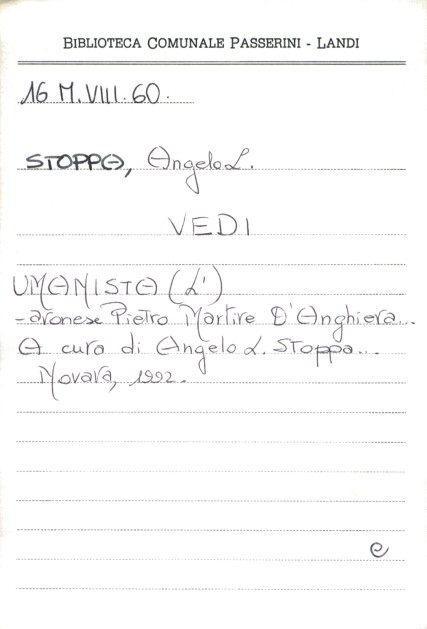 BIBLIOTECA COMUNALE PASSERINI - LANDI
16 M.VIII.60.
STOPPA, Angelo L.
VEDI
UMANISTA (L')
-aronese Pietro Martire D'Anghiera...
A cura di Angelo L. Stoppa...
Novara, 1992.
e